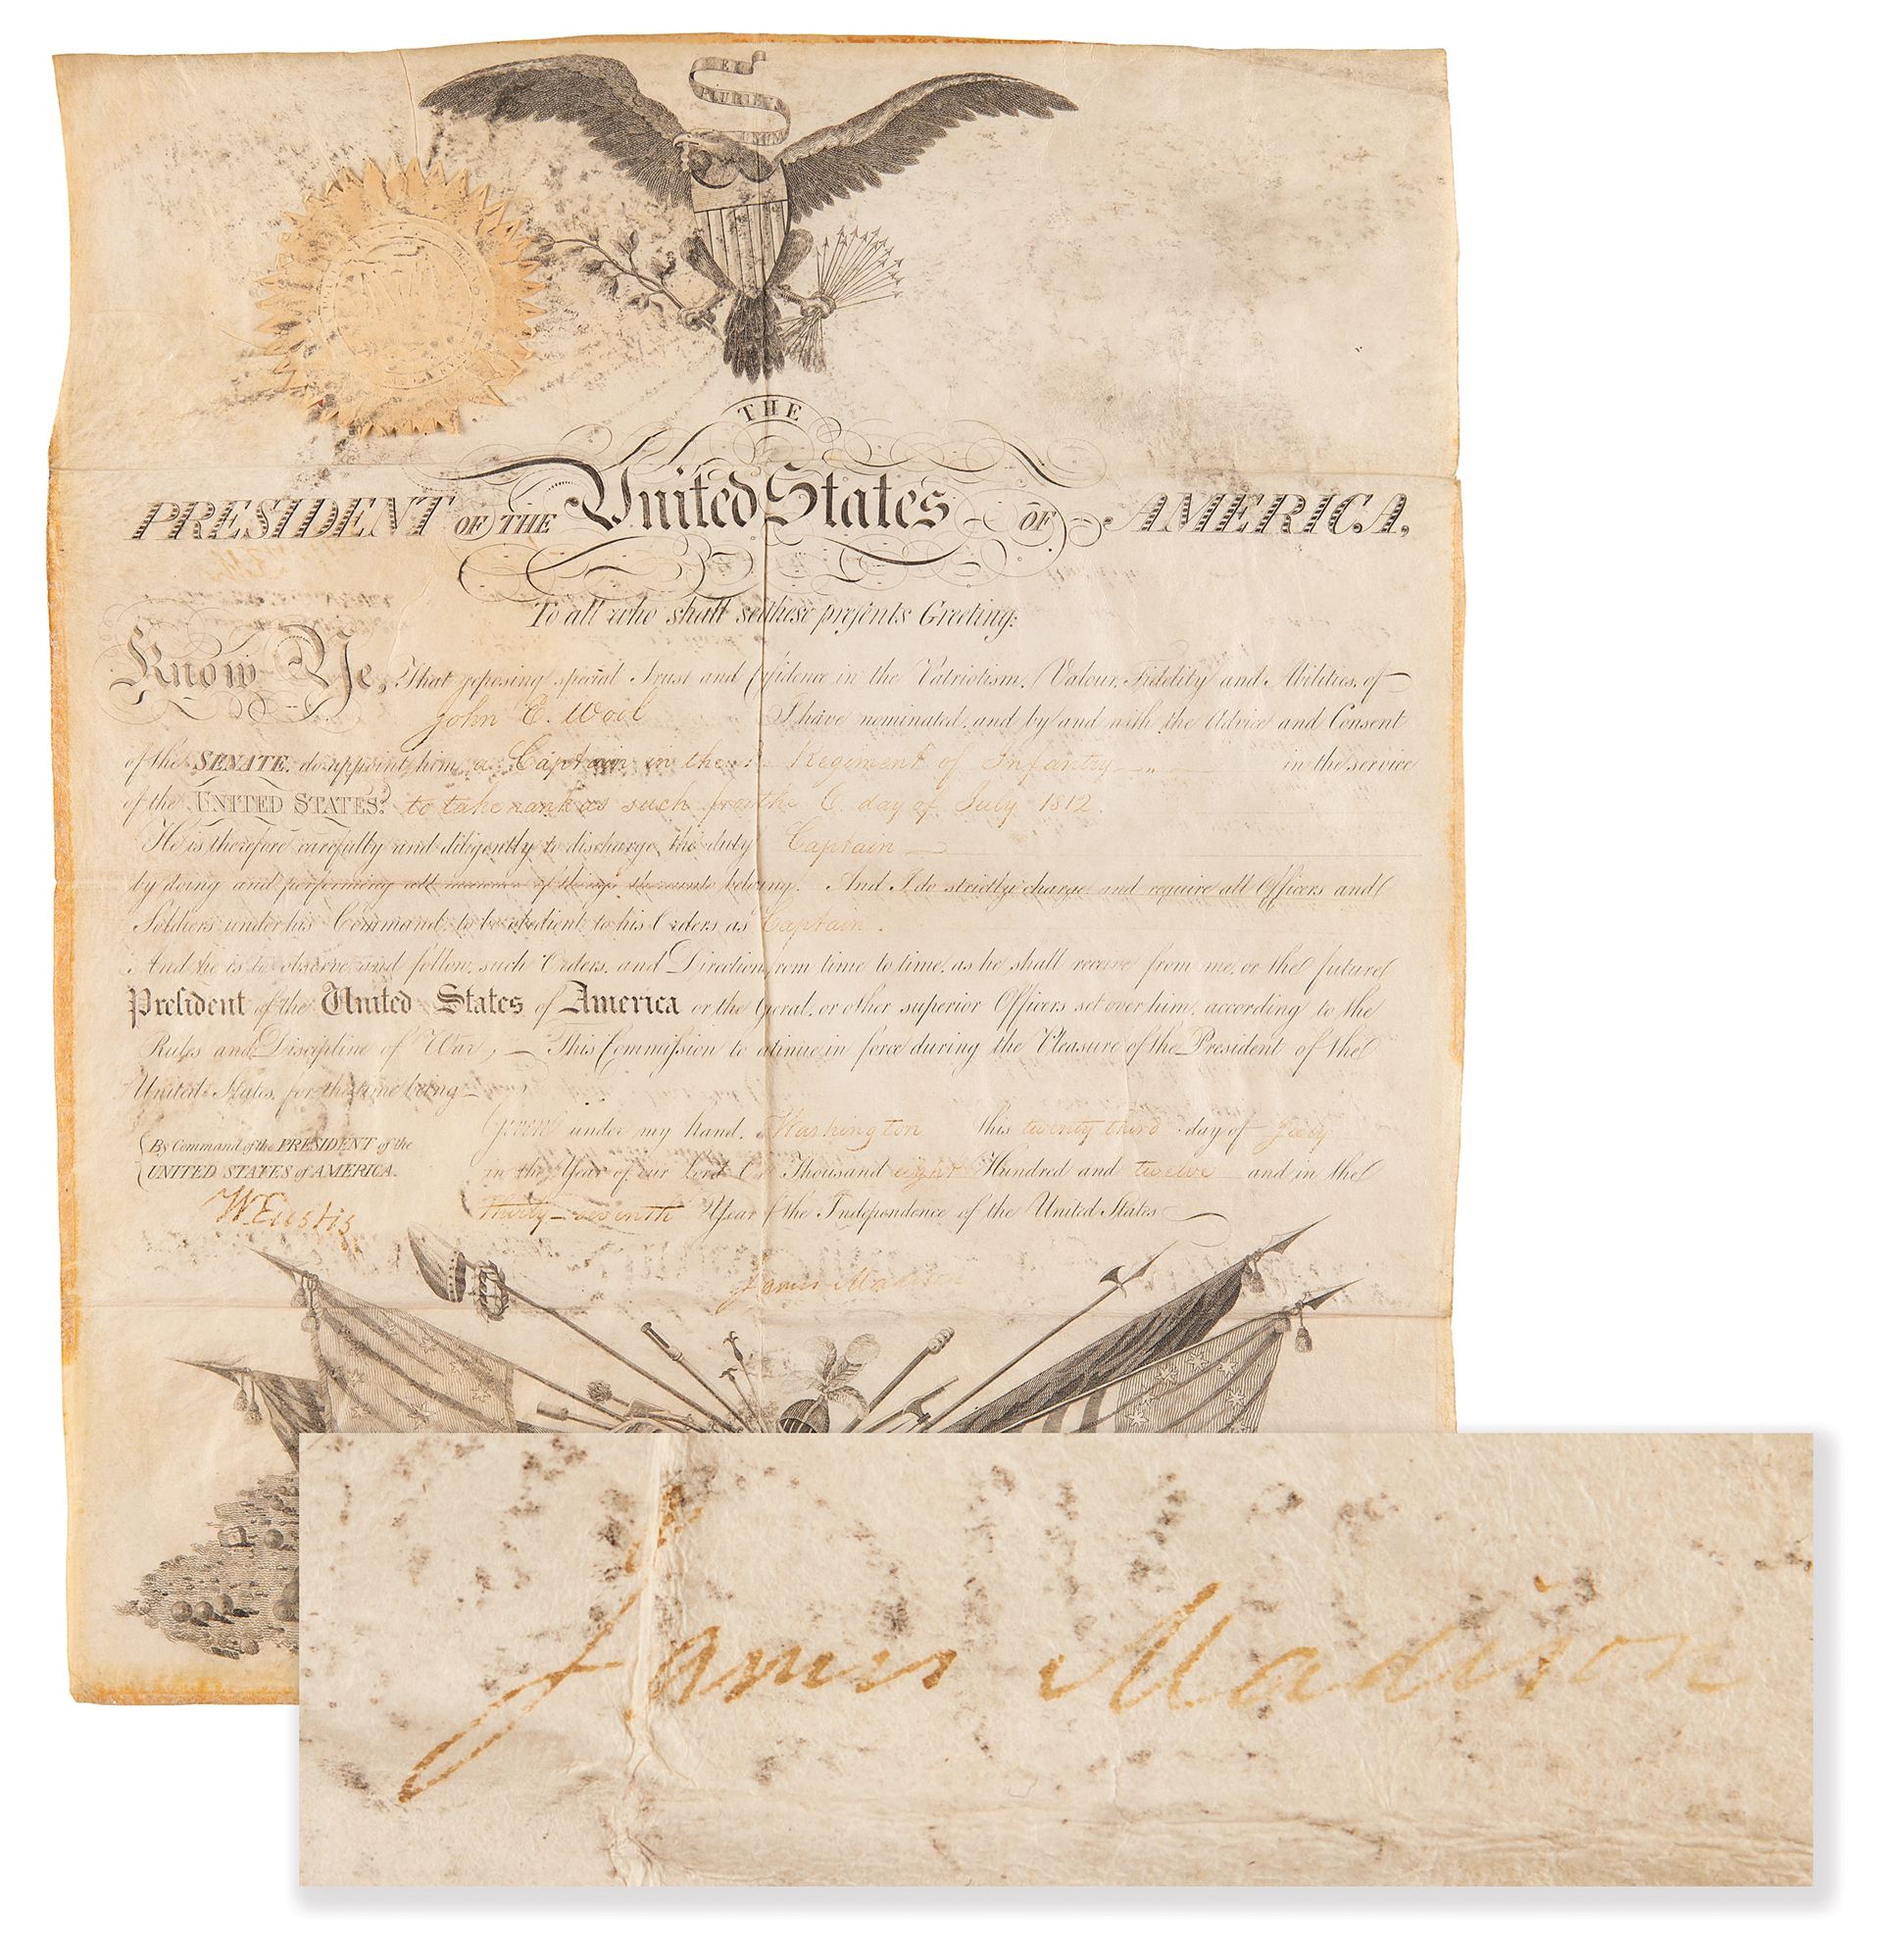 E PLURIBUS UNUM
THE
PRESIDENT OF THE United States OF AMERICA,
To all who shall see these presents Greeting:
Know Ye, That reposing special Trust and fidence in the Patriotism, Valour, Fidelity and Abilities, of
John E. Wool I have nominated, and by and with the Advice and Consent
of the SENATE, do appoint him a Captain in the Regiment of Infantry in the service
of the UNITED STATES: to take rank as such from the 6. day of July 1812.
He is therefore carefully and diligently to discharge the duty Captain
by doing and performing all manner of things thereunto belong. And I do strictly charge and require all Officers and
Soldiers under his Command, to be obedient to his Orders as Captain.
And he is to observe and follow, such Orders, and Direction from time to time, as he shall receive from me, or the future
President of the United States of America or the Geral, or other superior Officers set over him, according to the
Rules and Discipline of War, This Commission to ntinue in force during the Pleasure of the President of the
United States, for the time being
Given under my hand, Washington this twenty third day of July
in the Year of our Lord On Thousand eight Hundred and twelve and in the
Thirty-seventh Year of the Independence of the United States
By Command of the PRESIDENT of the
UNITED STATES of AMERICA.
W. Eustis
James Madison
James Madison